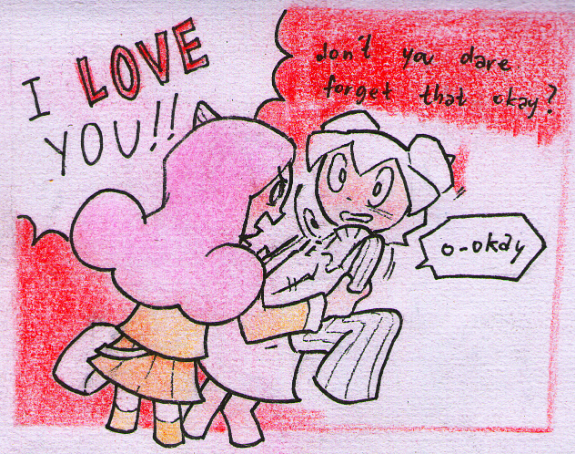 I LOVE
YOU!!
don't you dare
forget that okay?
o-okay